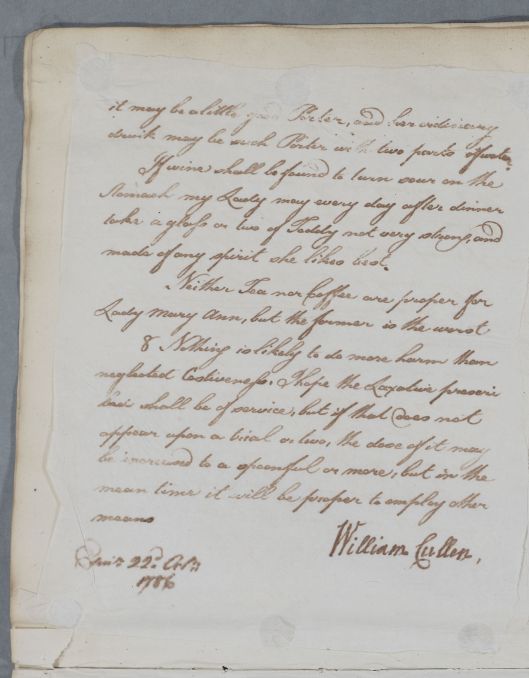 it may be a little good Porter, and her ordinary
drink may be such Porter with two parts of water.
If wine shall be found to turn sour on the
Stomach my Lady may every day after dinner
take a glass or two of Toddy not very strong, and
made of any spirit she likes best.
Neither Tea nor Coffee are proper for
Lady Mary Ann, but the former is the worst
8 Nothing is likely to do more harm than
neglected Costiveness. I hope the Laxative prescri
bed shall be of service, but if that does not
appear upon a trial or two, the dose of it may
be increased to a spoonful or more, but in the
mean time it will be proper to employ other
means
William Cullen.
22d
1786